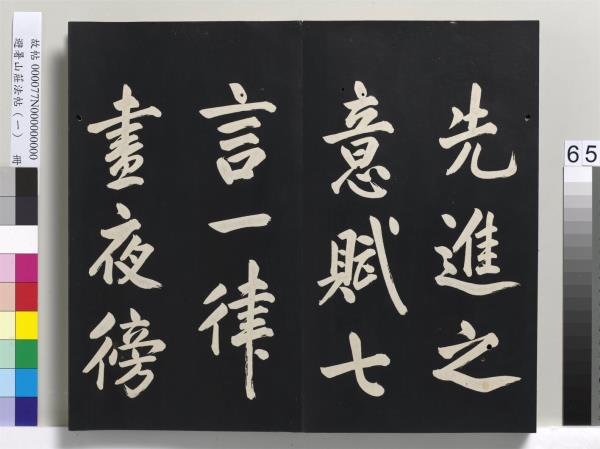 先進之
意賦七
言一律
晝夜徬
故帖 000077N000000000
避暑山莊法帖（一） 冊
6 5